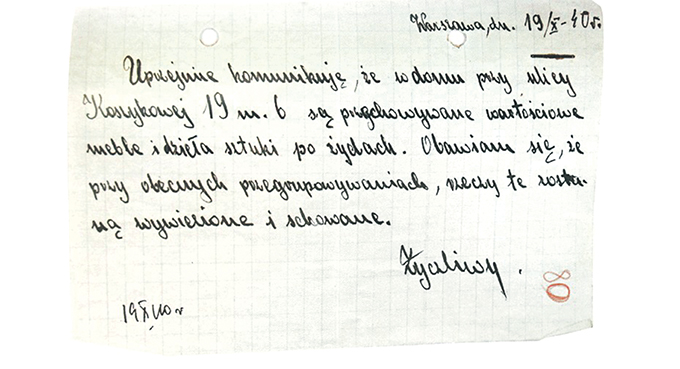 Warszawa, dn. 19/X-40r.
Uprzejmie komunikuję, że w domu przy ulicy
Koszykowej 19 m. 6 są przechowywane wartościowe
meble i dzieła sztuki po żydach. Obawiam się, że
przy obecnych przegrupowywaniach, rzeczy te zosta-
ną wywiezione i schowane.
Życzliwy.
80
19 X 40 r